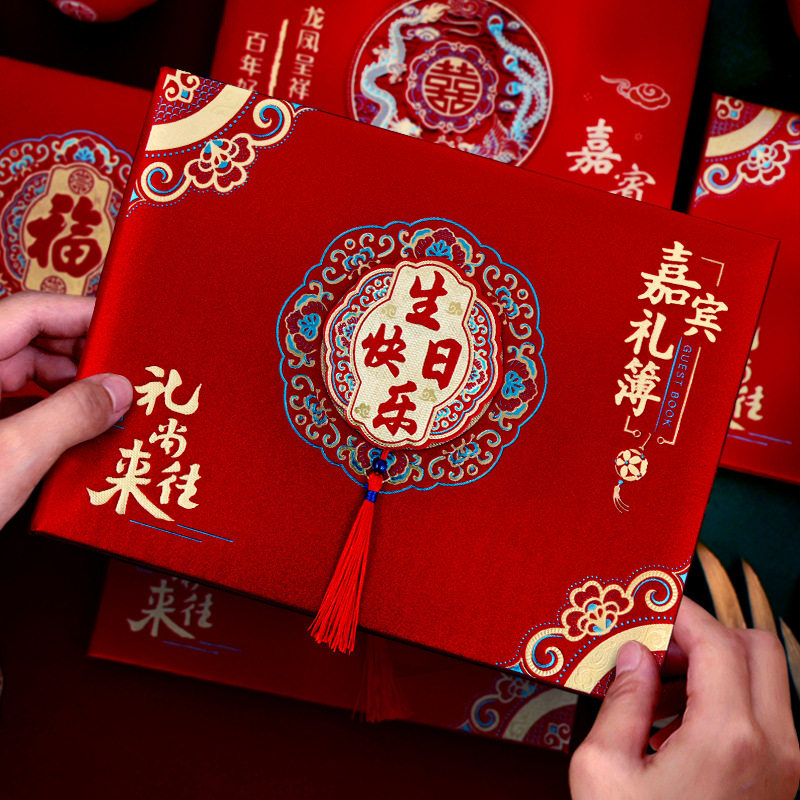 龙凤呈祥
百年好
囍
嘉宾
福
生日
快乐
嘉宾
礼簿
GUEST BOOK
礼尚
来往
尚往
来
往